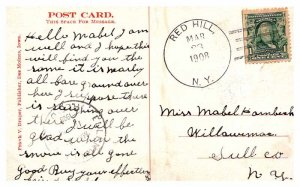 POST CARD.
THIS SPACE FOR MESSAGE.
Hello Mabel I am
well and I hope this
will find you the
snow it is nearly
all bare ground over
here I suppose there
is
over
there I will be
glad when the
snow is all gone
Good Buy your
RED HILL
MAR
23
1908
N.Y.
Miss Mabel
Willowemoc
Sull co
N.Y.
Publisher, Des Moines, Iowa.